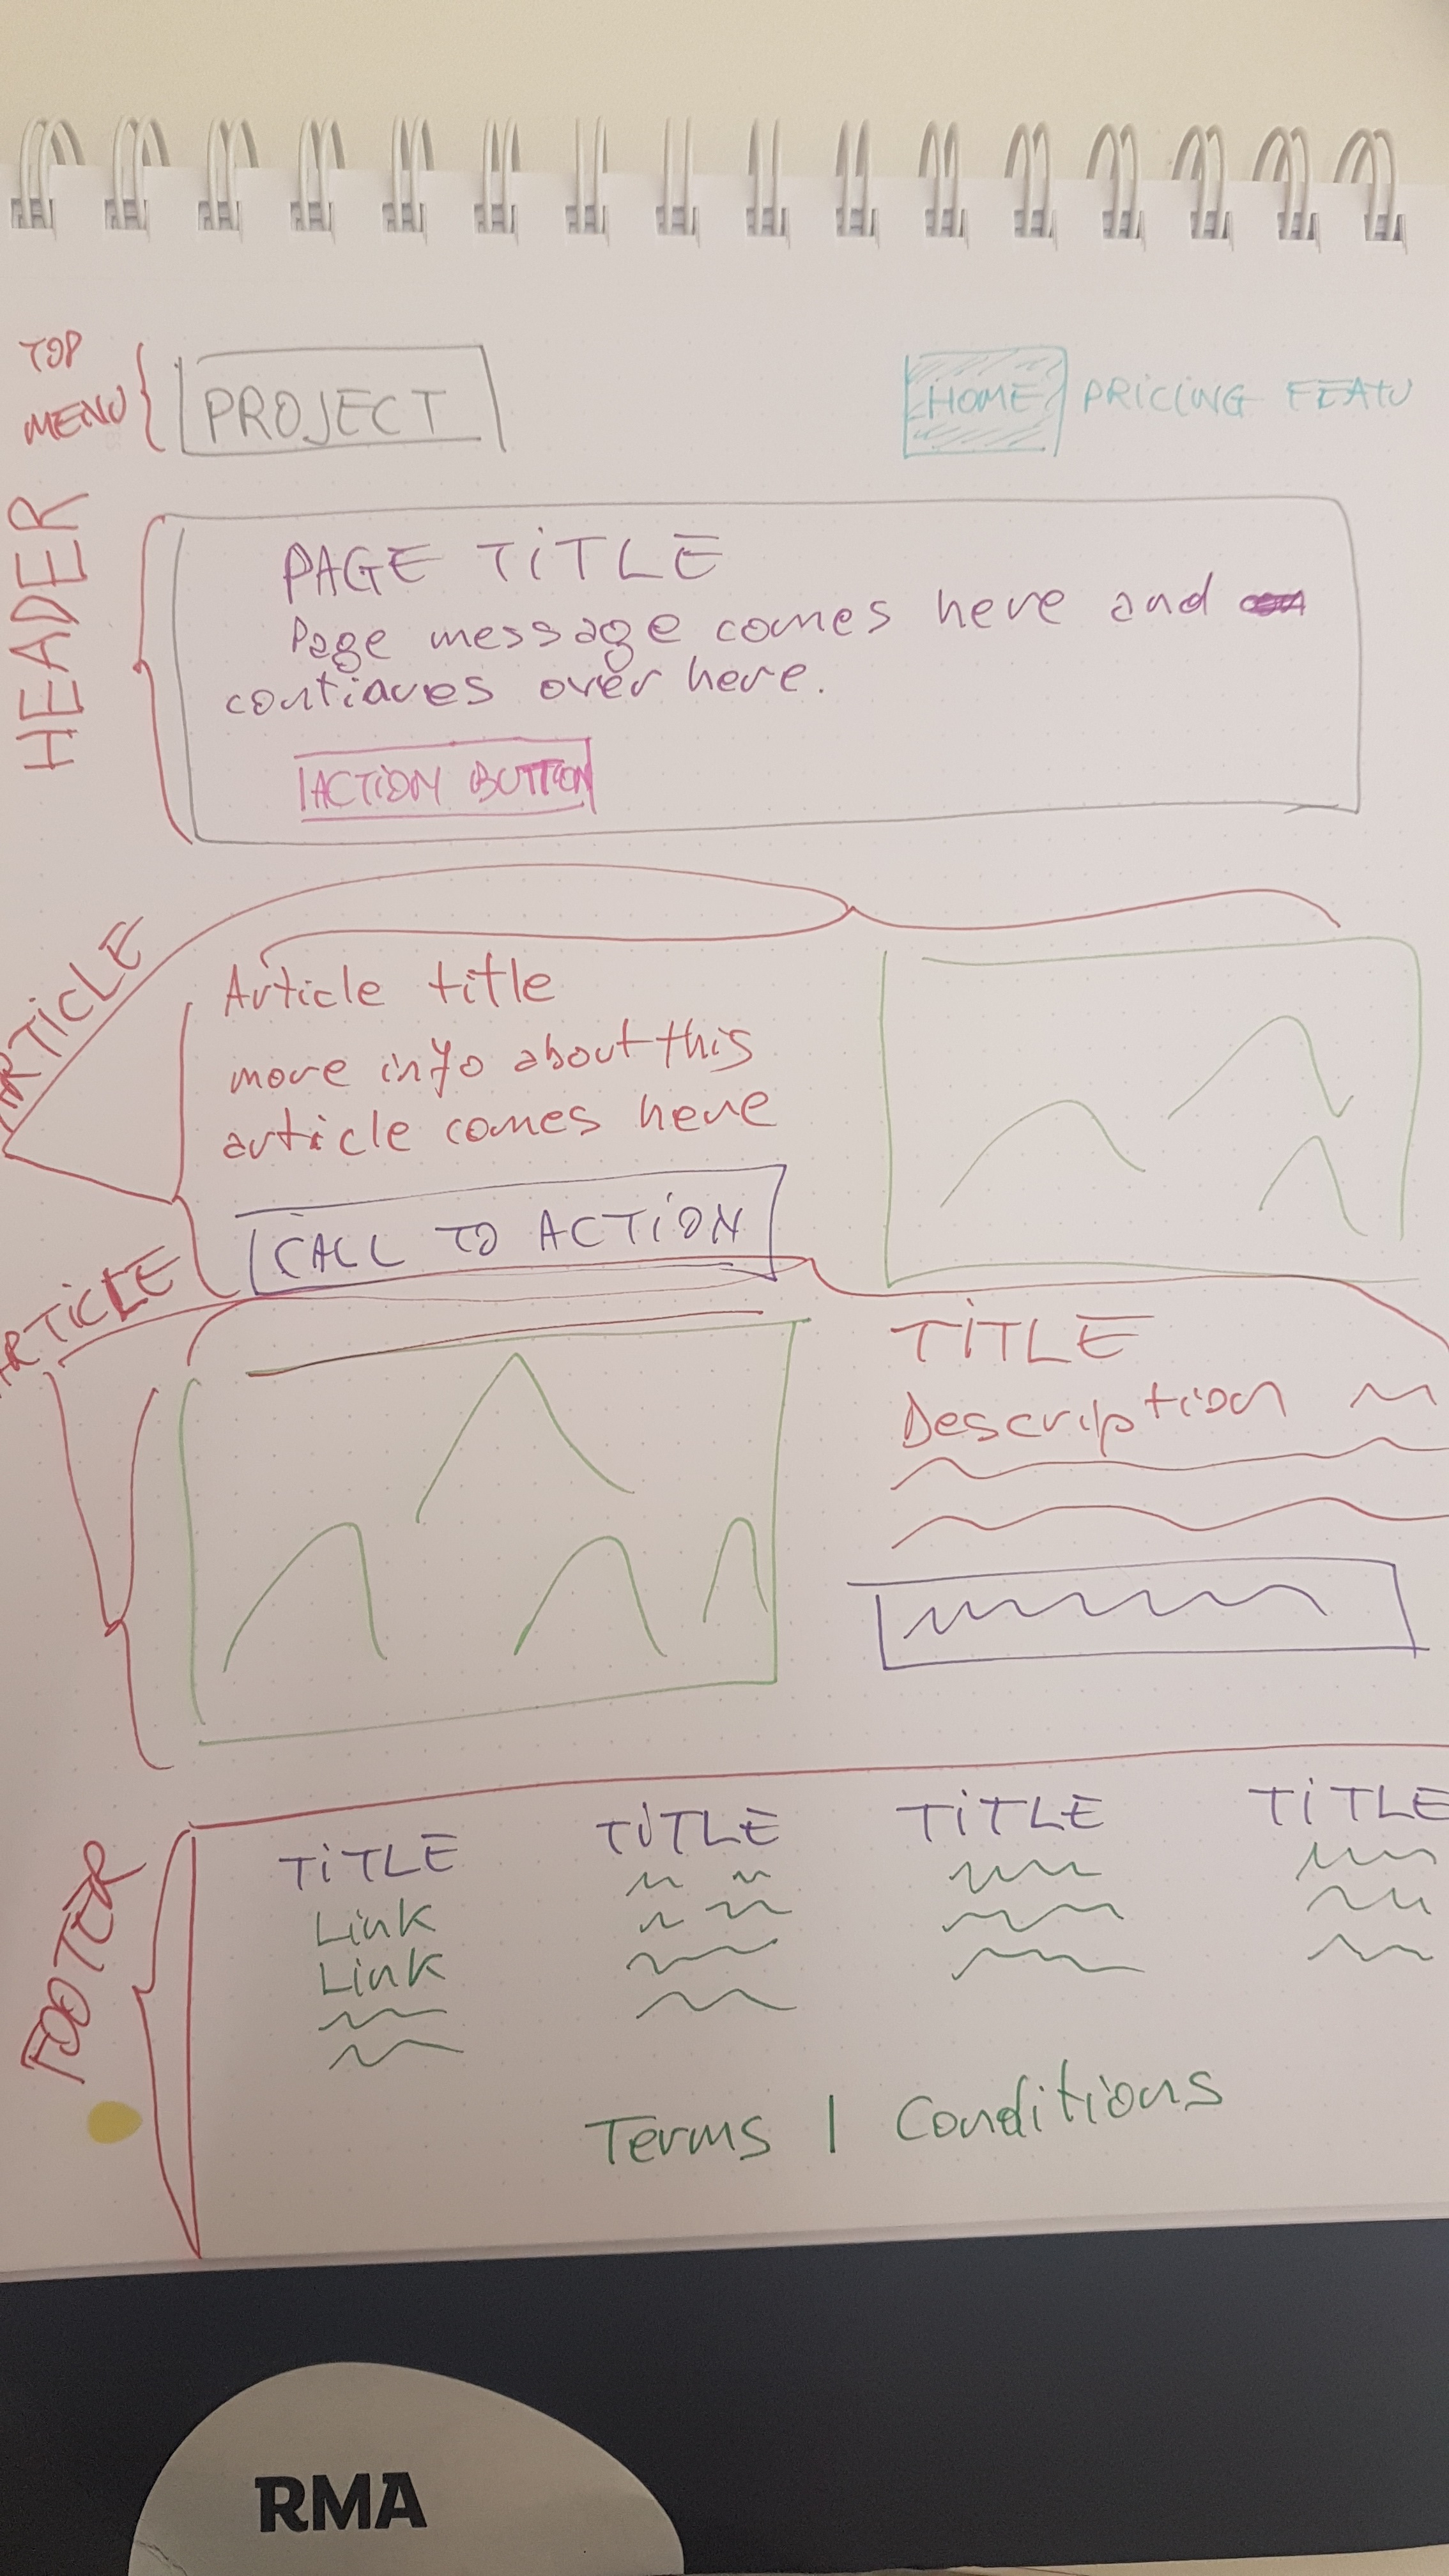 TOP
MENU
PROJECT
HOME PRICING FEATU
HEADER
PAGE TITLE
Page message comes here and
continues over here.
ACTION BUTTON
ARTICLE
Article title
more info about this
article comes here
CALL TO ACTION
ARTICLE
TITLE
Description
FOOTER
TITLE TITLE TITLE TITLE
Link
Link
Terms | Conditions
RMA